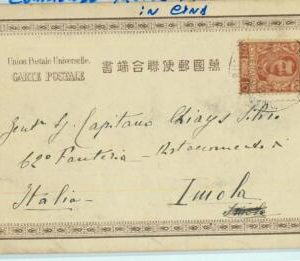 in Cina
Union Postale Universelle.
CARTE POSTALE
萬國郵便聯合端書
Capitano Chiays Silvio
62° Fanteria - Distaccamento di
Italia - Imola
Imola